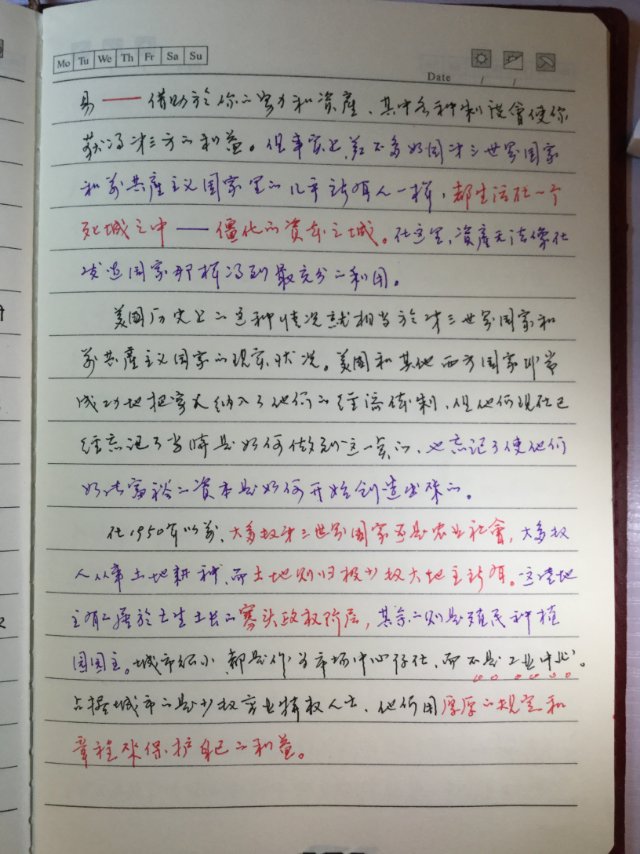 Mo Tu We Th Fr Sa Su
Date / /
易——借助於你的实力和資產，其中各种制設會使你
获得才三方的利益。但事实上，差不多好国才三世界国家
和前共產主义国家里的几乎所有人一样，都生活在一个
死城之中——僵化的資本之城。在这里，資產无法像在
发达国家那样得到最充分的利用。
美国历史上的这种情况就相当於才三世界国家和
前共產主义国家的现实状况。美国和其他西方国家非常
成功地把穷人纳入了他们的经济体制，但他们现在已
经忘记了当時是如何做到这一点的，也忘记了使他们
如此富裕的資本是如何开始創造出來的。
在1950年以前，大多数才三世界国家百是农业社會，大多数
人从事土地耕种，而土地则归极少数大地主所有。这些地
主有的屬於土生土长的寡头政权阶层，其余的则是殖民种植
园园主。城市纽小，都是作为市场中心存在，而不是工业中心。
占據城市的是少数商业特权人士，他们用厚厚的规定和
章程來保护自己的利益。